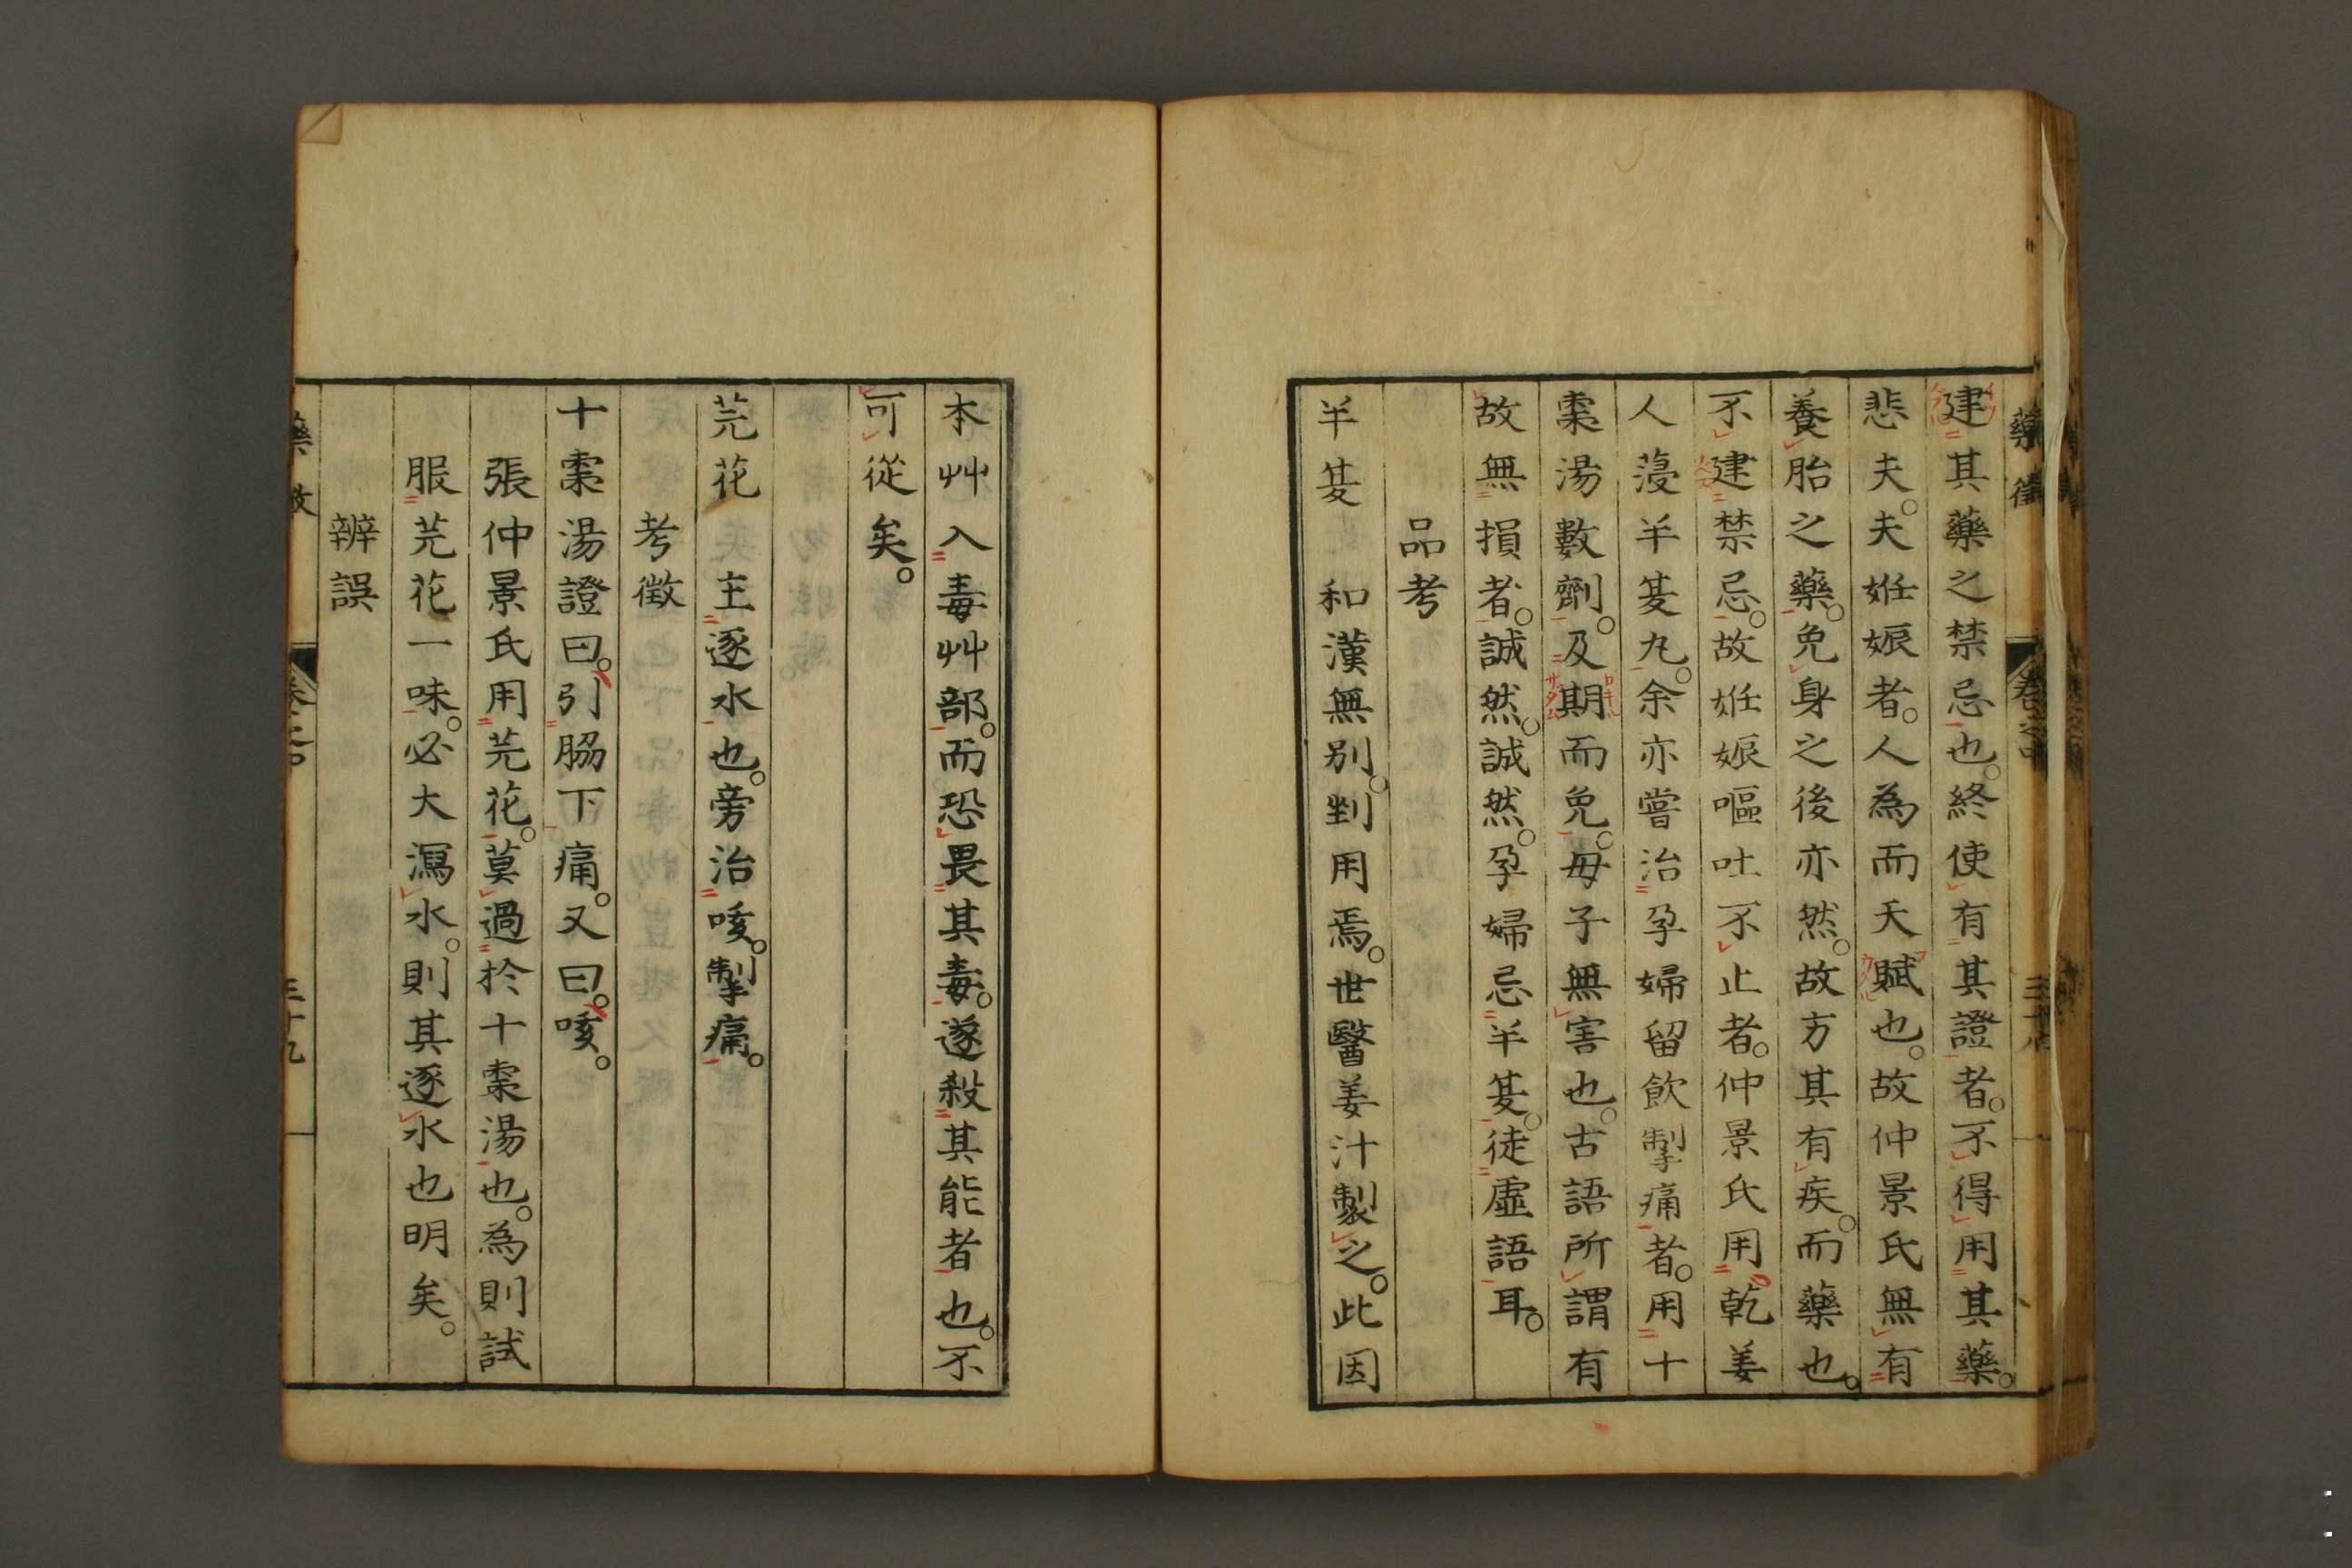 藥徵 卷之中 三十八
建其藥之禁忌也。終使有其證者。不得用其藥。
悲夫。夫妊娠者。人為而天賦也。故仲景氏無有
養胎之藥。免身之後亦然。故方其有疾。而藥也。
不建禁忌。故妊娠嘔吐不止者。仲景氏用乾姜
人蓡半夏丸。余亦嘗治孕婦留飲掣痛者。用十
棗湯數劑。及期而免。毋子無害也。古語所謂有
故無損者。誠然。誠然。孕婦忌半夏。徒虛語耳。
品考
半夏 和漢無別。剉用焉。世醫姜汁製之。此因
本艸入毒艸部。而恐畏其毒。遂殺其能者也。不
可從矣。
芫花 主逐水也。旁治咳。掣痛。
考徵
十棗湯證曰。引脇下痛。又曰。咳。
張仲景氏用芫花。莫過於十棗湯也。為則試
服芫花一味。必大瀉水。則其逐水也明矣。
辨誤
藥徵 卷之中 三十九